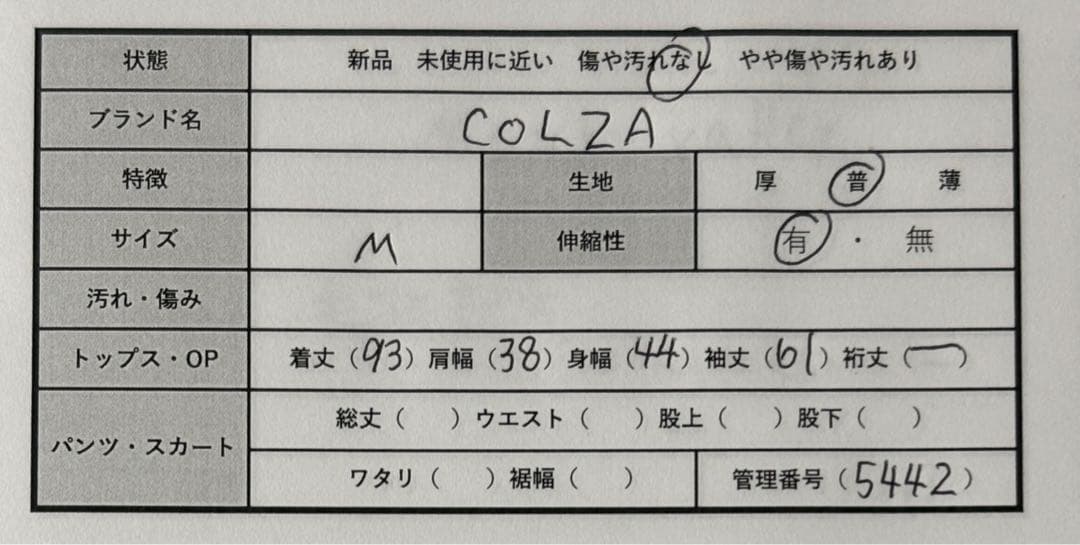 状態 新品 未使用に近い 傷や汚れなし やや傷や汚れあり
ブランド名 COLZA
特徴 生地 厚 普 薄
サイズ M 伸縮性 有 ・ 無
汚れ・傷み
トップス・OP 着丈（93）肩幅（38）身幅（44）袖丈（61）裄丈（ー）
パンツ・スカート 総丈（ ）ウエスト（ ）股上（ ）股下（ ）
ワタリ（ ）裾幅（ ） 管理番号（5442）